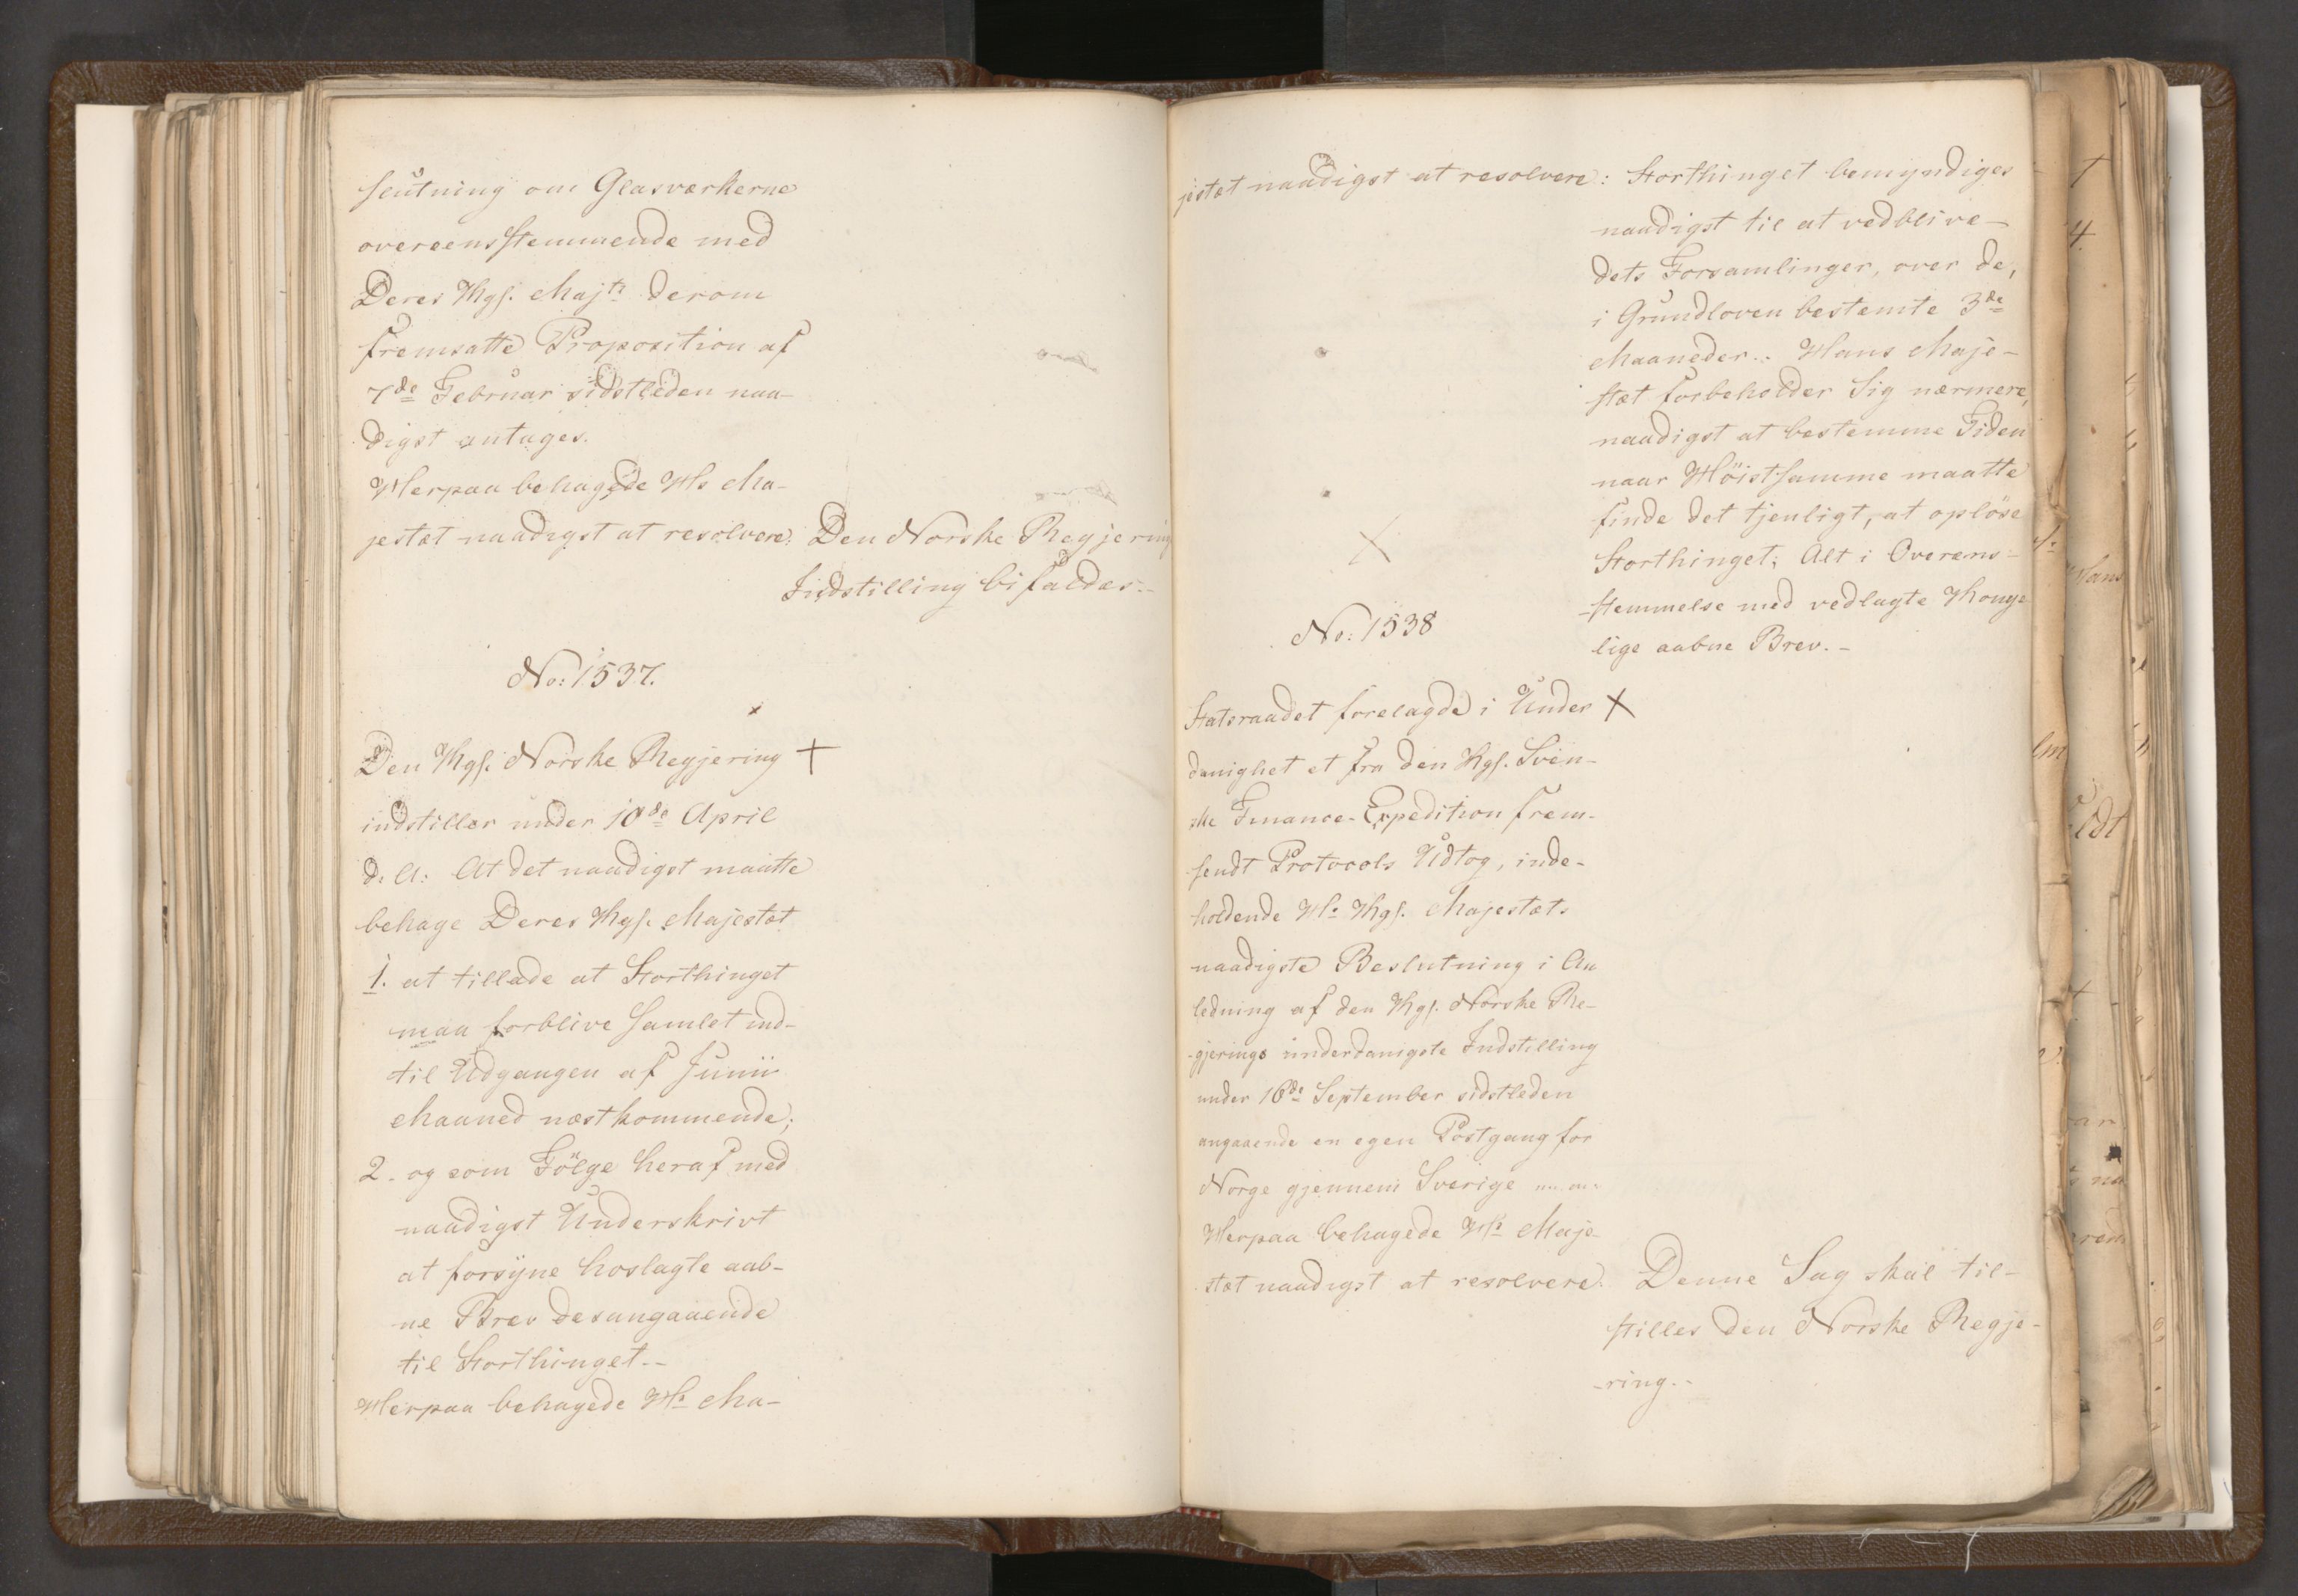 slutning om Glasværkerne
overeensstemmende med
Deres Kgs. Majts derom
fremsatte Proposition af
7de Februar sidstleden naa-
digst antages.
Herpaa behagede Hs Ma-
jestæt naadigst at resolvere: Den Norske Regjering
Indstilling bifaldes.-
No: 1537.
Den Kgs. Norske Regjering +
indstiller under 10de April
d. A: At det naadigst maatte
behage Deres Kgs. Majestæt
1. at tillade at Storthinget
maa forblive samlet ind-
til Udgangen af Junii
Maaned næstkommende;
2. og som Fölge heraf med
naadigst Underskrivt
at forsyne hoslagte aab-
ne Brev desangaaende
til Storthinget.-
Herpaa behagede Hs Ma-
jestæt naadigst at resolvere: Storthinget bemyndiges
naadigst til at vedblive-
dets Forsamlinger, over de,
i Grundloven bestemte 3de
Maaneder.. Hans Maje-
stæt forbeholder Sig nærmere,
naadigst at bestemme Tiden
naar Höistsamme maatte
finde det tjenligt, at oplöse
Storthinget; Alt i Overens-
-stemmelse med vedlagte Konge
lige aabne Brev.-
No: 1538
Statsraadet forelagde i Under X
danighet et fra den Kgs. Sven-
ske Finance-Expedition frem-
sendt Protocols Udtog, inde-
holdende Hs Kgs. Majestæts
naadigste Beslutning i An
ledning af den Kgs. Norske Re-
-gjerings underdanigste Indstilling
under 16de September sidstleden
angaaende en egen Postgang for
Norge gjennem Sverige m. m.
Herpaa behagede Hs Maje-
stæt naadigst at resolvere. Denne Sag skal til-
stilles den Norske Regje-
-ring.-